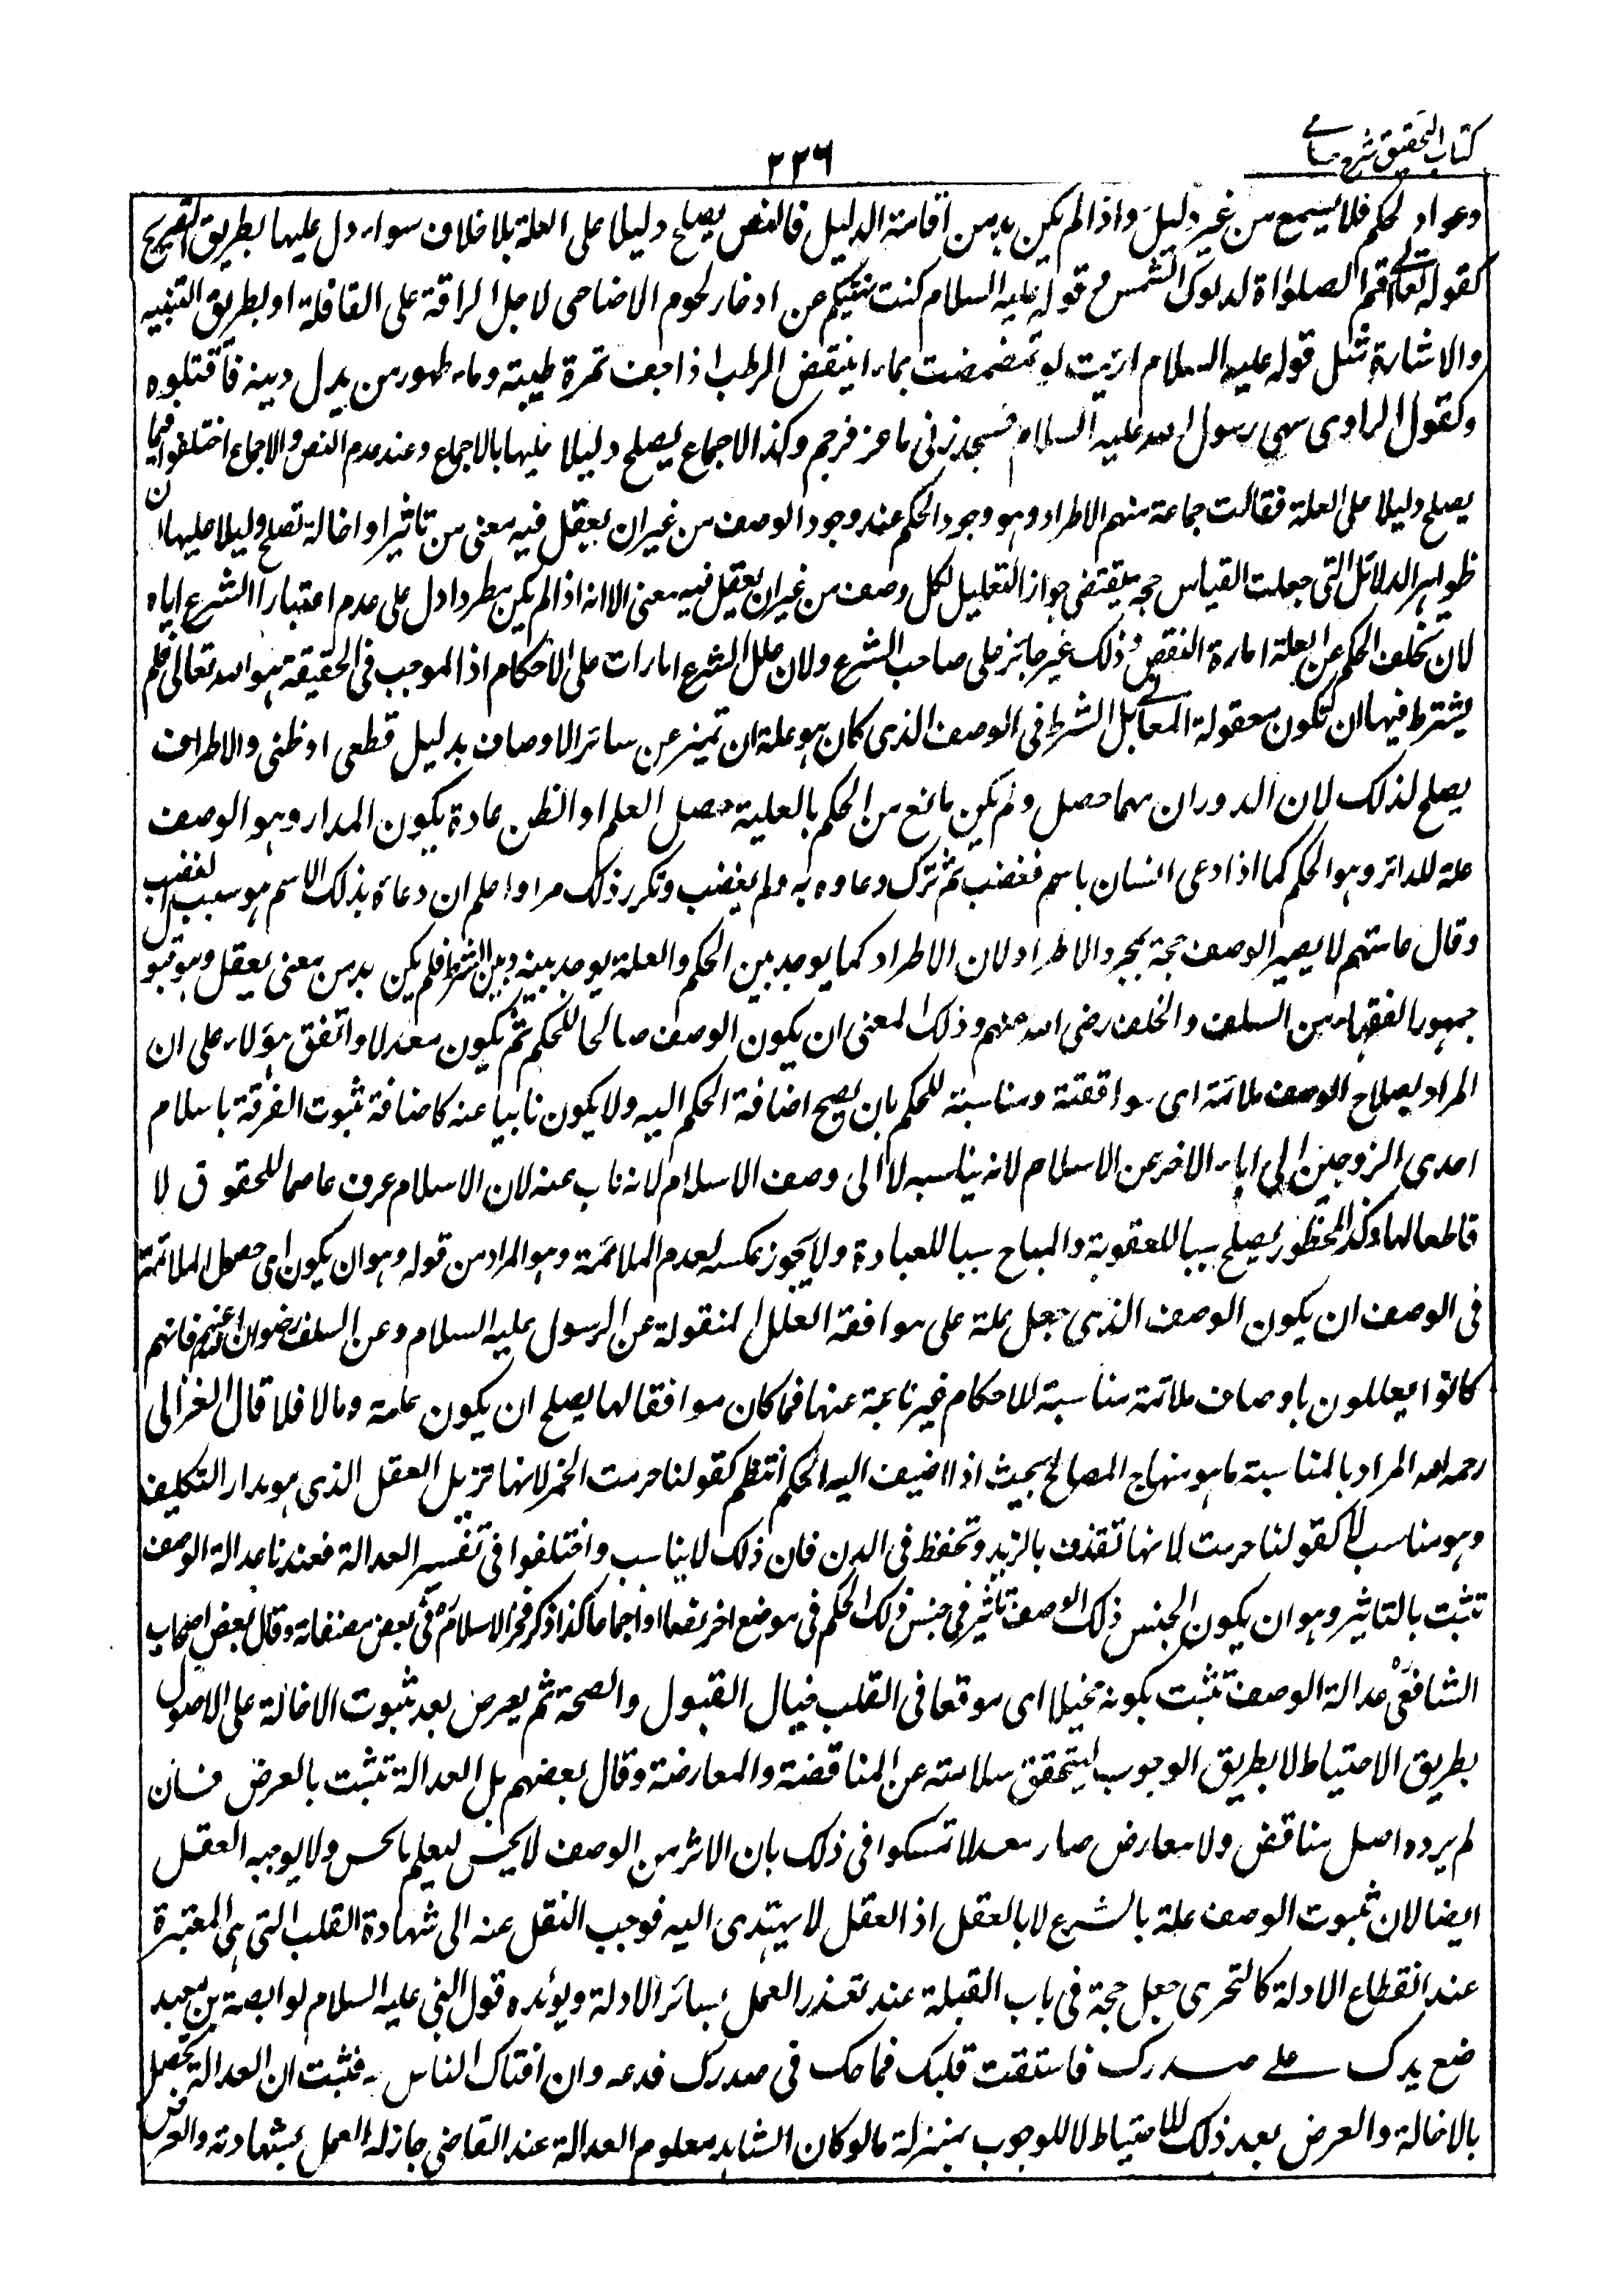 كتاب التحقيق شرح حسامي
٢٢٦
دعواد لحكم فلا يسمع من غير دليل واذا لم يكن بد من اقامة الدليل فالنص يصلح دليلا على العلة بلا خلاف سواء دل عليها بطريق التصريح
كقوله تعالى اقم الصلوٰاة لدلوك الشمس و قوله عليه السلام كنت نهيتكم عن ادخار لحوم الاضاحى لاجل الراقة على القافلة او بطريق التنبيه
والاشارة مثل قوله عليه السلام ارئيت لو تمضمضت بماء اينقض الرطب اذا جف تمرة طيبة وماء طهور من بدل دينه فاقتلوه
وكقول الراوى سهى رسول الله عليه السلام فسجد زنى ماعز فرجم وكذا الاجماع يصلح دليلا عليها بالاجماع وعند عدم النص والاجماع اختلفوا فيما
يصلح دليلا على العلة فقالت جماعة منهم الاطراد وهو وجود الحكم عند وجود الوصف من غير ان يعقل فيه معنى من تاثير او اخالة تصلح دليلا عليها لان
ظواهر الدلائل التى جعلت القياس حجة يقتضى جواز التعليل لكل وصف من غير ان يعقل فيه معنى الا انه اذا لم يكن مطردا دل على عدم اعتبار الشرع اياه
لان تخلف الحكم عن العلة امارة النقض وذلك غير جائز على صاحب الشرع ولان علل الشرع امارات على الاحكام اذ الموجب فى الحقيقة هو الله تعالى فلم
يشترط فيها ان تكون معقولة المعانى بل الشرط فى الوصف الذى كان هو علة ان تميز عن سائر الاوصاف بدليل قطعى او ظنى والاطراف
يصلح لذلك لان الدوران مهما حصل ولم يكن مانع من الحكم بالعلية حصل العلم او الظن عادة يكون المدار وهو الوصف
علة للدائر وهو الحكم كما اذا دعى انسان باسم فغضب ثم ترك دعاوه به ولم يغضب وتكرر ذلك مرارا علم ان دعاه بذلك الاسم هو سبب الغضب
وقال عامتهم لا يصير الوصف حجة بمجرد الاطراد لان الاطراد كما يوجد بين الحكم والعلة يوجد بينه وبين الشرط فلم يكن بد من معنى يعقل وهو قول
جمهور الفقهاء من السلف والخلف رضى الله عنهم وذلك المعنى ان يكون الوصف صالحا للحكم ثم يكون معدلا واتفق هؤلاء على ان
المراد بصلاح الوصف ملائمة اى موافقته ومناسبته للحكم بان يصح اضافة الحكم اليه ولا يكون نابيا عنه كاضافة ثبوت الفرقة باسلام
احدى الزوجين الى اباء الاخر عن الاسلام لانه يناسبه لا الى وصف الاسلام لانه ناب عنه لان الاسلام عرف عاصما للحقوق لا
قاطعا لها وكذا المحظور يصلح سببا للعقوبة والمباح سببا للعبادة ولا يجوز عكسه لعدم الملائمة وهو المراد من قوله وهو ان يكون اى حصول الملائمة
فى الوصف ان يكون الوصف الذى جعل علة على موافقة العلل المنقولة عن الرسول عليه السلام وعن السلف رضوان الله عنهم فانهم
كانوا يعللون باوصاف ملائمة مناسبة للاحكام غير نابية عنها فما كان موافقا لها يصلح ان يكون علة وما لا فلا قال الغزالى
رحمه الله المراد بالمناسبة ما هو منهاج المصالح بحيث اذا اضيف اليه الحكم انتظم كقولنا حرمت الخمر لانها تزيل العقل الذى هو مدار التكليف
وهو مناسب لا كقولنا حرمت لانها تقذف بالزبد وتحفظ فى الدن فان ذلك لا يناسب واختلفوا فى تفسير العدالة فعندنا عدالة الوصف
تثبت بالتاثير وهو ان يكون لجنس ذلك الوصف تاثير فى جنس ذلك الحكم فى موضع اخر نصا او اجماعا كذا ذكر فخر الاسلام فى بعض مصنفاته وقال بعض اصحاب
الشافعى عدالة الوصف تثبت بكونه مخيلا اى موقعا فى القلب خيال القبول والصحة ثم يعرض بعد ثبوت الاخالة على الاصول
بطريق الاحتياط لا بطريق الوجوب ليتحقق سلامته عن المناقضة والمعارضة وقال بعضهم بل العدالة تثبت بالعرض فان
لم يرده اصل مناقض ولا معارض صار معدلا تمسكوا فى ذلك بان الاثر من الوصف لا يحس ليعلم بالحس ولا يوجبه العقل
ايضا لان ثبوت الوصف علة بالشرع لا بالعقل اذ العقل لا يهتدى اليه فوجب النقل عنه الى شهادة القلب التى هى المعتبرة
عند انقطاع الادلة كالتحرى جعل حجة فى باب القبلة عند تعذر العمل بسائر الادلة ويؤيده قول النبى عليه السلام لوابصة بن معبد
ضع يدك على صدرك فاستفت قلبك فما حك فى صدرك فدعه وان افتاك الناس به فثبت ان العدالة تحصل
بالاخالة والعرض بعد ذلك للاحتياط لا للوجوب بمنزلة ما لو كان الشاهد معلوم العدالة عند القاضى جاز له العمل بشهادته والعرض